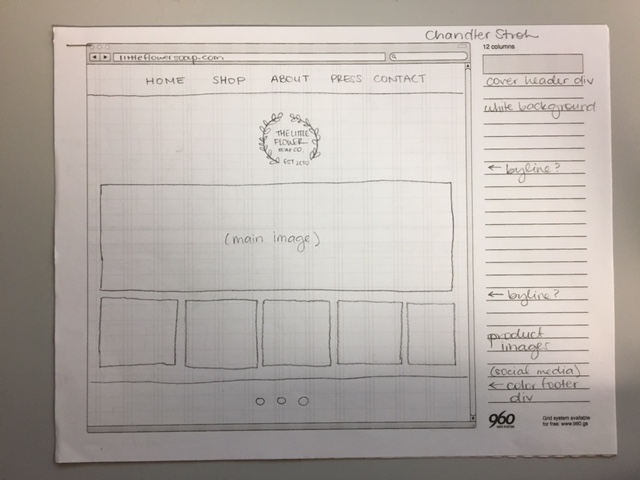 Chandler Stroh
12 columns
littleflowersoap.com
HOME SHOP ABOUT PRESS CONTACT
THE LITTLE
FLOWER
SOAP CO.
EST
(main image)
cover header div
white background
← byline?
← byline?
product
images
(social media)
← color footer
div
960
Grid system available
for free: www.960.gs